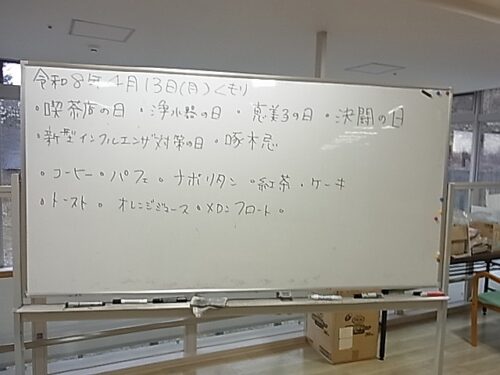 令和8年4月13日(月)くもり
・喫茶店の日 ・浄水器の日 ・恵美子の日 ・決闘の日
・新型インフルエンザ対策の日 ・啄木忌
・コーヒー・パフェ ・ナポリタン ・紅茶 ・ケーキ
・トースト ・オレンジジュース ・メロンフロート ・